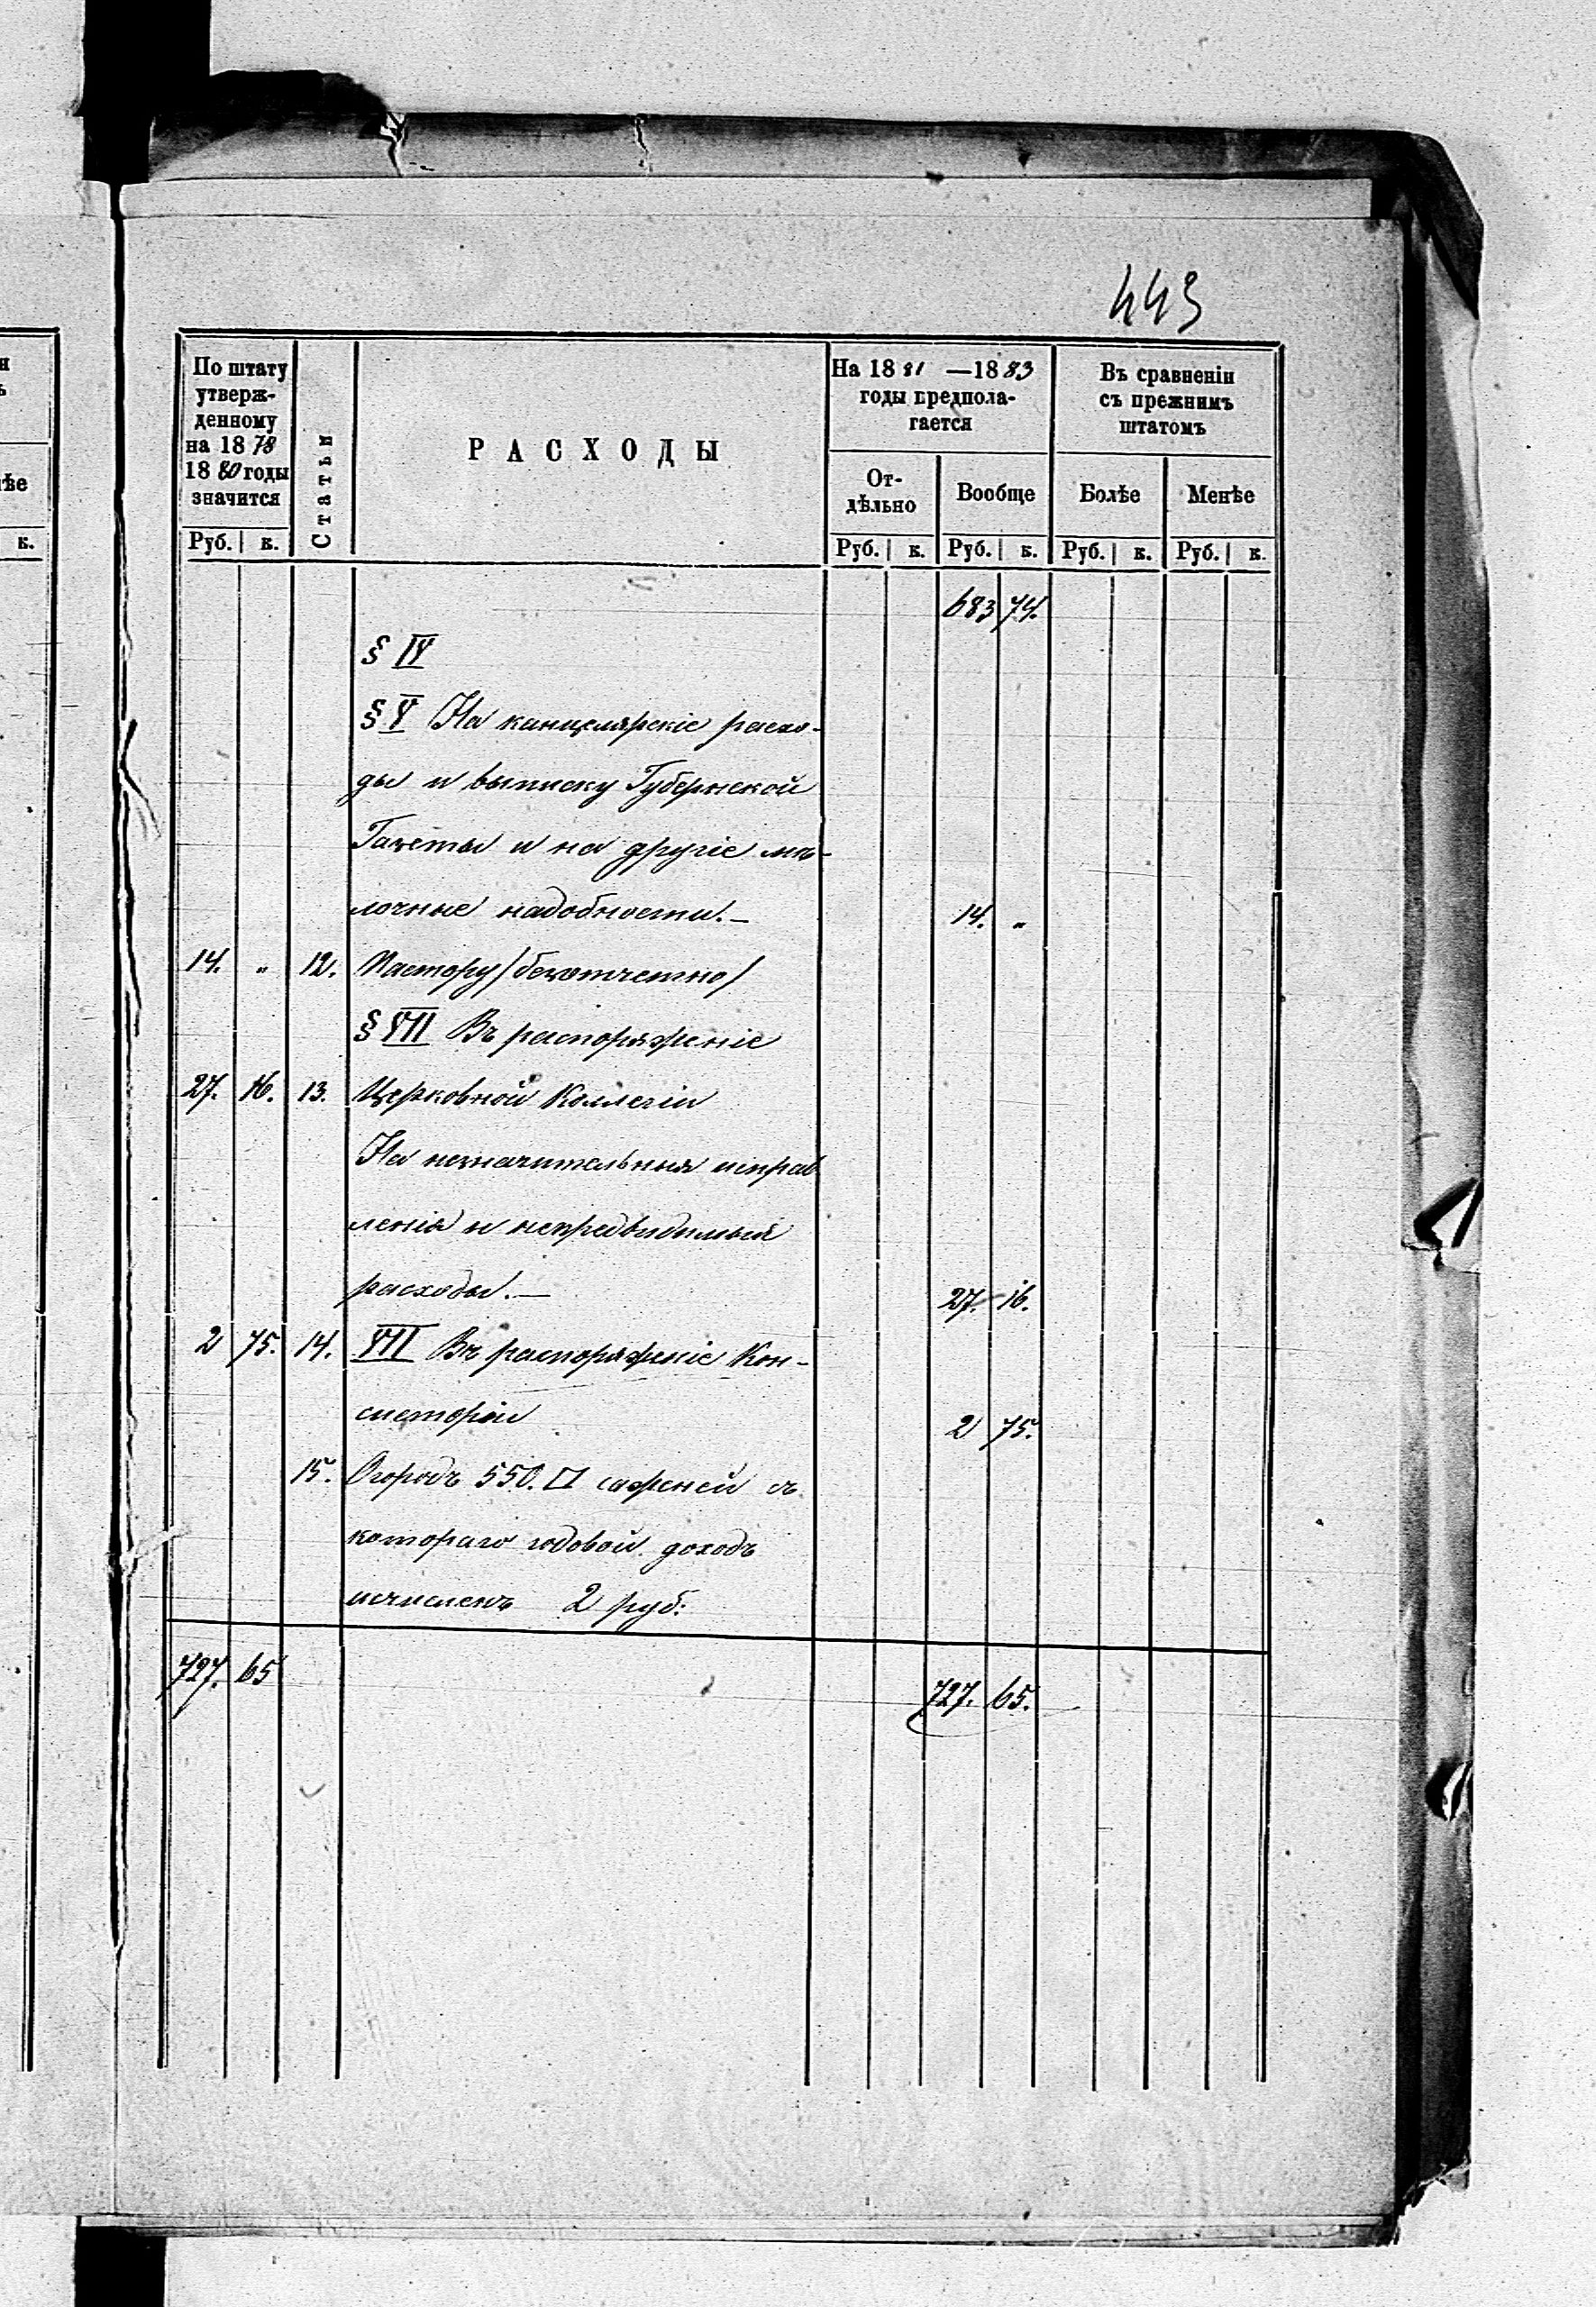 443
По штату
утверж-
денному
на 1878
1880 годы
значится
Статьи
РАСХОДЫ
На 1881 —1883
годы предпола-
гается
Въ сравненіи
съ прежнимъ
штатомъ
От-
дѣльно
Вообще
Болѣе
Менѣе
Руб. к.
Руб. к. Руб. к. Руб. к. Руб. к.
683 74.
§ IV
§ V На канцелярскіе расхо-
ды и выписку Губернской
Газеты и на другіе ме-
лочные надобности.— 14. "
14. " 12. Пастору /безотчетно/
§ VII Въ распоряженіе
27. 16. 13. Церковной Коллегіи
На незначительныя исправ
ленія и непредвидимыя
расходы.— 27. 16.
2 75. 14. VII Въ распоряженіе Кон-
систоріи 2 75.
15. Огородъ 550. □ саженей съ
котораго годовой доходъ
исчисленъ 2 руб:
727. 65 727. 65.
н
ъ
ѣе
к.